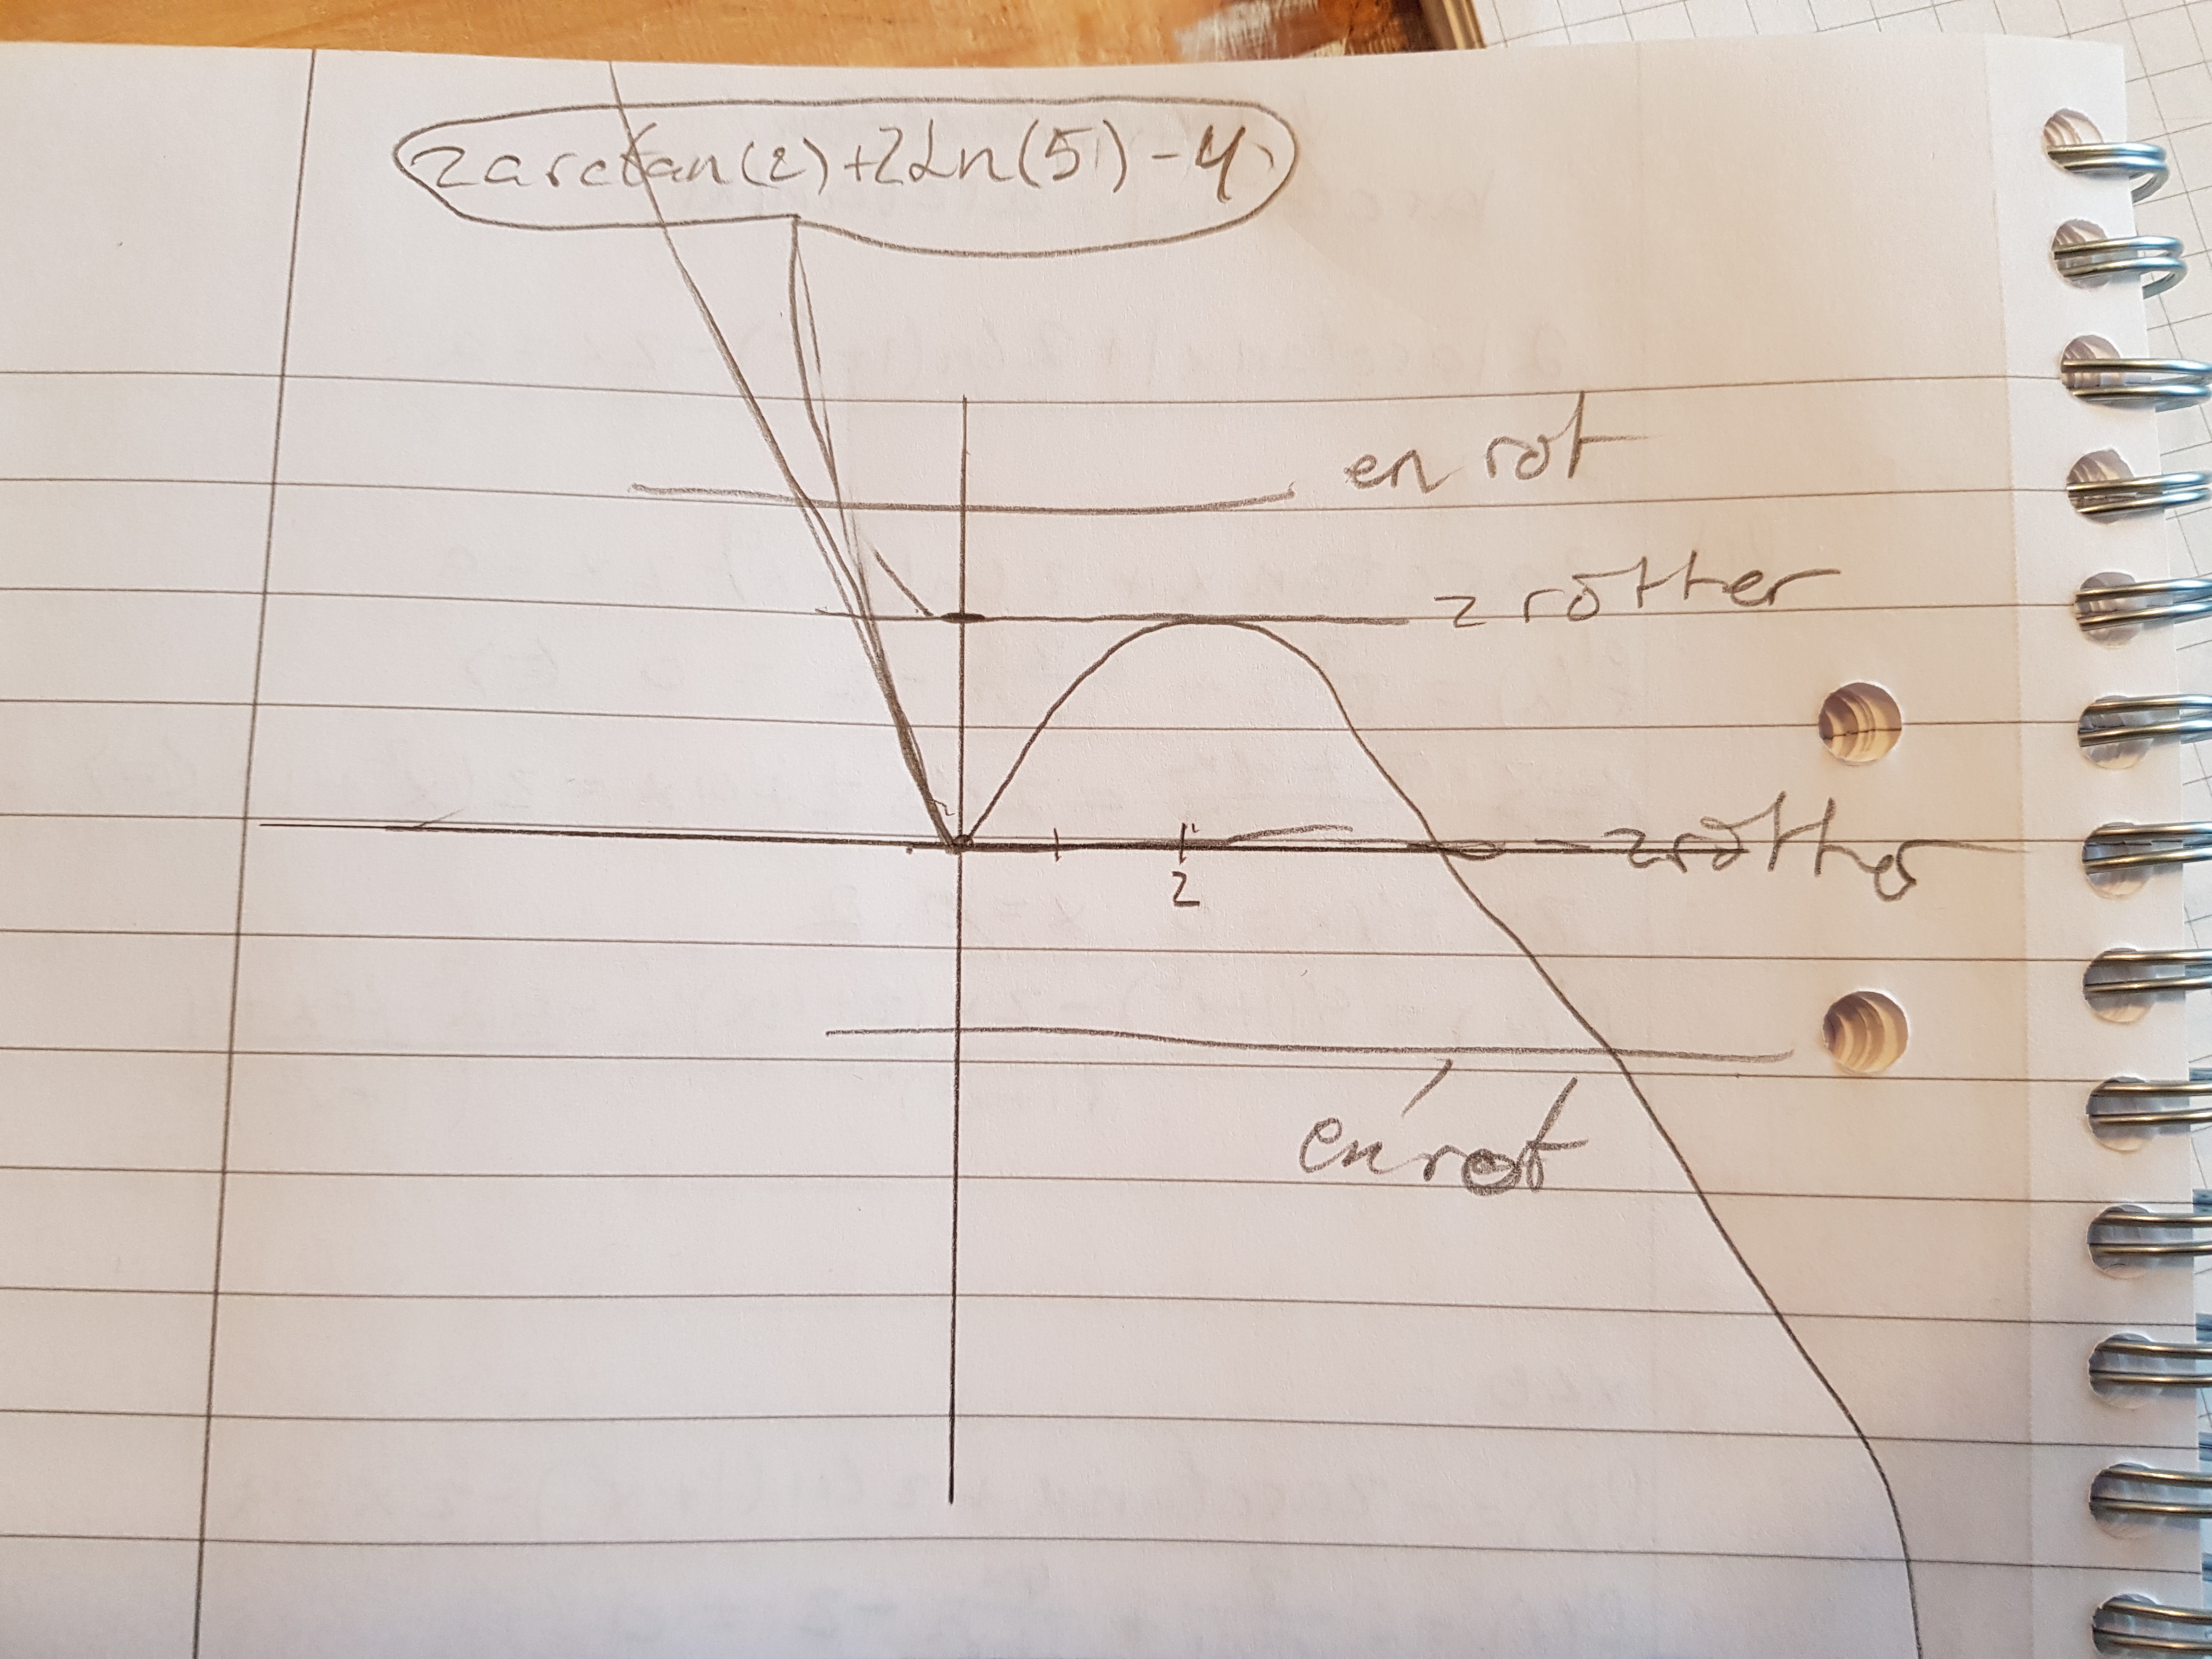 2arctan(2)+2Ln(5)-4
en rot
2 rötter
2
2 rötter
en rot